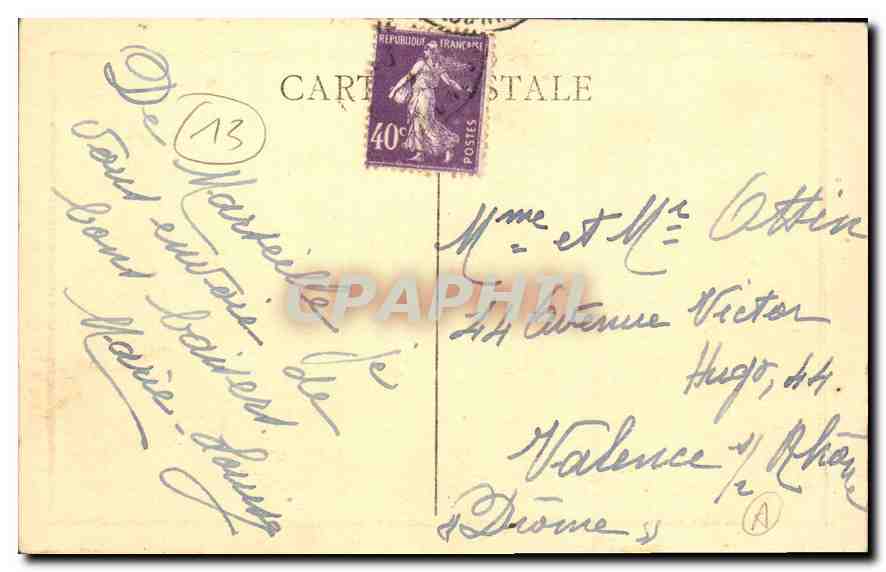 CARTE POSTALE
REPUBLIQUE FRANÇAISE
40c
POSTES
13
De Marseille je
vous envoie de
bons baisers
Marie-Louise
Mme et Mr Ottin
44 Avenue Victor
Hugo, 44
Valence s/r Rhône
"Drôme"
A
CPAPHIL